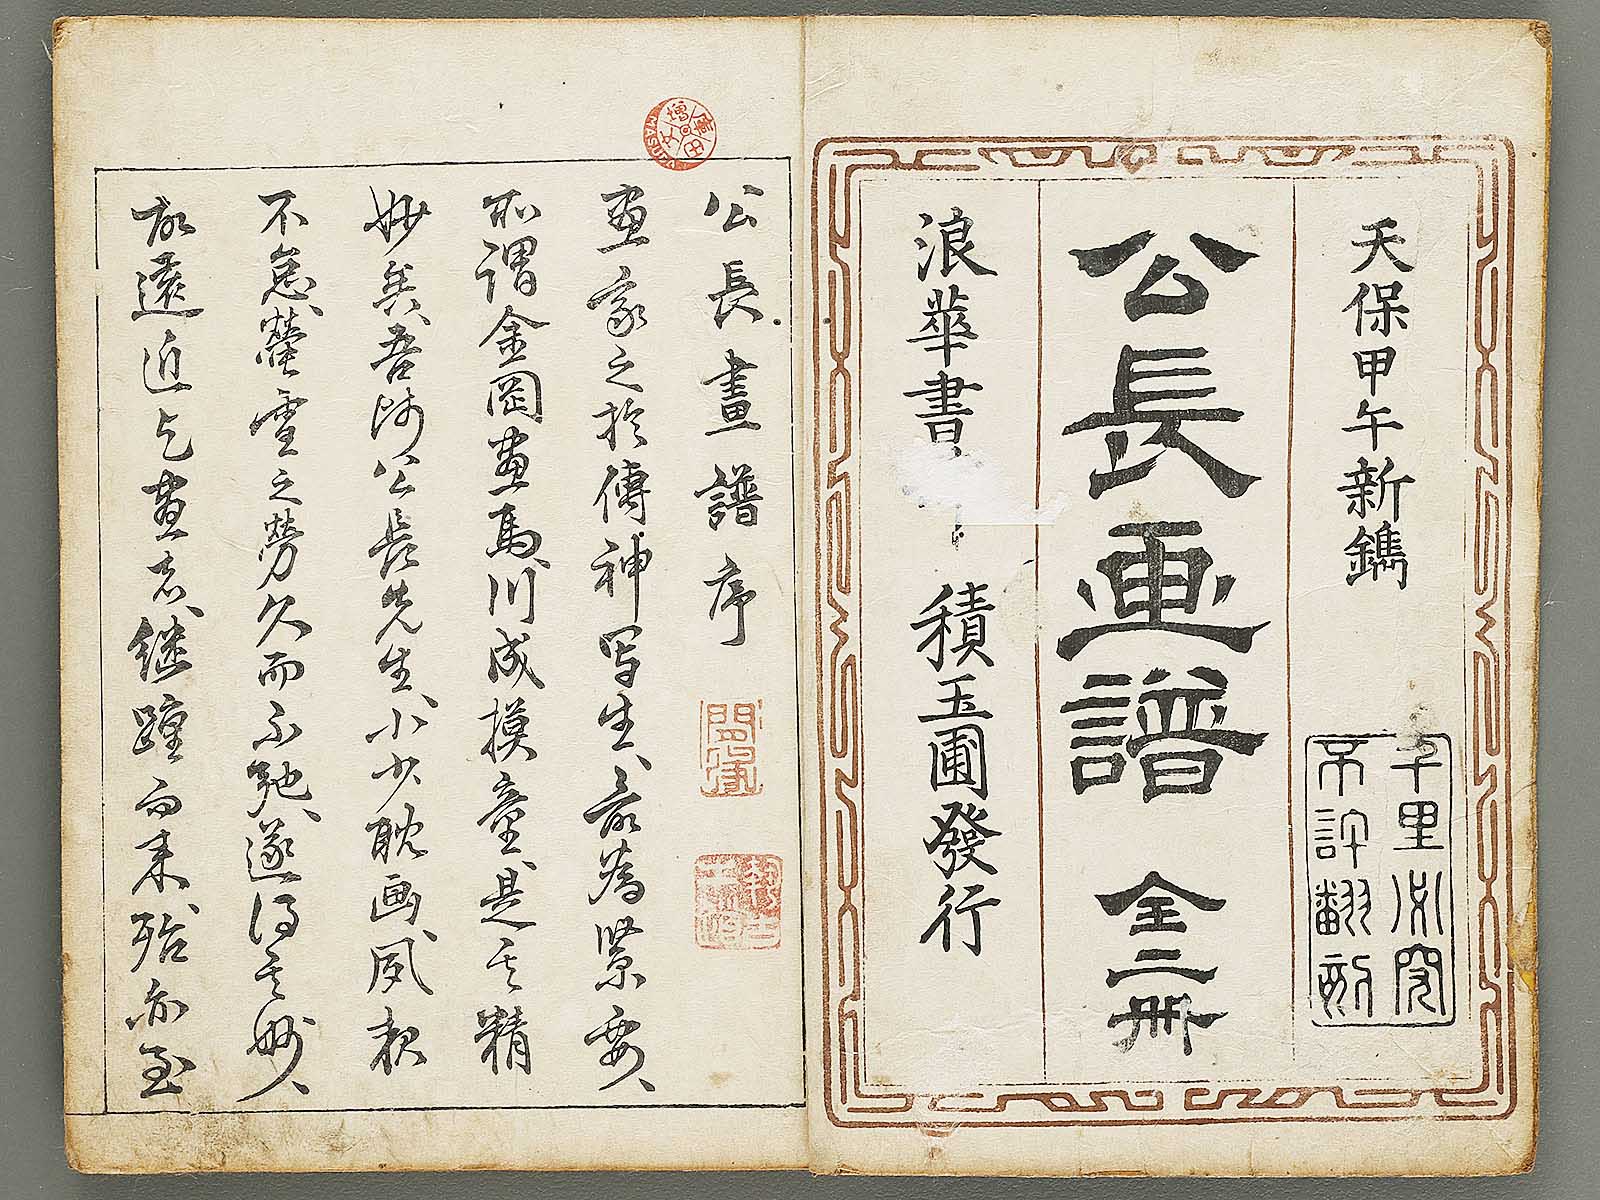 天保甲午新鐫
千里必究
不許翻刻
公長画譜 全二冊
浪華書 積玉圃發行
公長畫譜序
畫家之於傳神写生、最為緊要、
所謂金岡畫馬、川成摸童、是其精
妙矣、吾師公長先生、小少耽画、夙
不怠、螢雪之勞久而不弛、遂得其妙、
故遠近乞畫者、継踵而来、殆亦至
増田
MASUDA